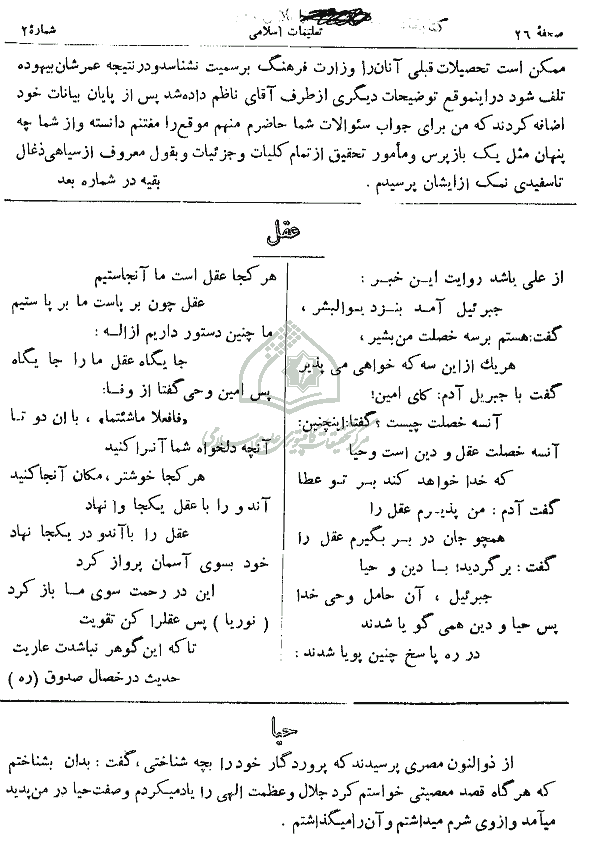 صفحهٔ ۲۶
تعلیمات اسلامی
شمارهٔ ۲
ممکن است تحصیلات قبلی آنان‌را وزارت فرهنگ برسمیت نشناسدو درنتیجه عمرشان بیهوده
تلف شود دراینموقع توضیحات دیگری ازطرف آقای ناظم داده‌شد پس از پایان بیانات خود
اضافه کردند که من برای جواب سئوالات شما حاضرم منهم موقع‌را مغتنم دانسته واز شما چه
پنهان مثل یک بازپرس ومأمور تحقیق ازتمام کلیات وجزئیات وبقول معروف ازسیاهی ذغال
تاسفیدی نمک ازایشان پرسیدم .
بقیه در شماره بعد
عقل
از علی باشد روایت ایـن خبـر :
جبرئیل آمد بنـزد بوالبشر ،
گفت:هستم برسه خصلت من‌بشیر ،
هریك ازاین سه که خواهی می پذیر
گفت با جبریل آدم: کای امین!
آنسه خصلت چیست ؟ گفتا:اینچنین:
آنسه خصلت عقل و دین است وحیا
که خدا خواهد کند بـر تـو عطا
گفت آدم : من پذیـرم عقل را
همچو جان در بـر بگیرم عقل را
گفت : برگردید! بـا دین و حیا
جبرئیل ، آن حامل وحی خدا
پس حیا و دین همی گو یا شدند
در ره پاسخ چنین پویا شدند :
هرکجا عقل است ما آنجاستیم
عقل چون بر پاست ما بر پا ستیم
ما چنین دستور داریم ازاله :
جایگاه عقل ما را جایگاه
پس امین وحی گفتا از وفـا:
«فافعلا ماشئتما» ، باان دو تـا
آنچه دلخواه شما آنـرا کنید
هرکجا خوشتر ، مکان آنجاکنید
آندو را با عقل یکجا وا نهاد
عقل را باآندو در یکجا نهاد
خود بسوی آسمان پرواز کرد
این در رحمت سوی مـا باز کرد
( نوریا ) پس عقل‌را کن تقویت
تاکه این گوهر نباشدت عاریت
حدیث درخصال صدوق (ره )
حیا
از ذوالنون مصری پرسیدند که پروردگار خودرا بچه شناختی ، گفت : بدان بشناختم
که هرگاه قصد معصیتی خواستم کرد جلال وعظمت الهی را یادمیکردم وصفت‌حیا در من‌پدید
میآمد وازوی شرم میداشتم وآن‌رامیگذاشتم .